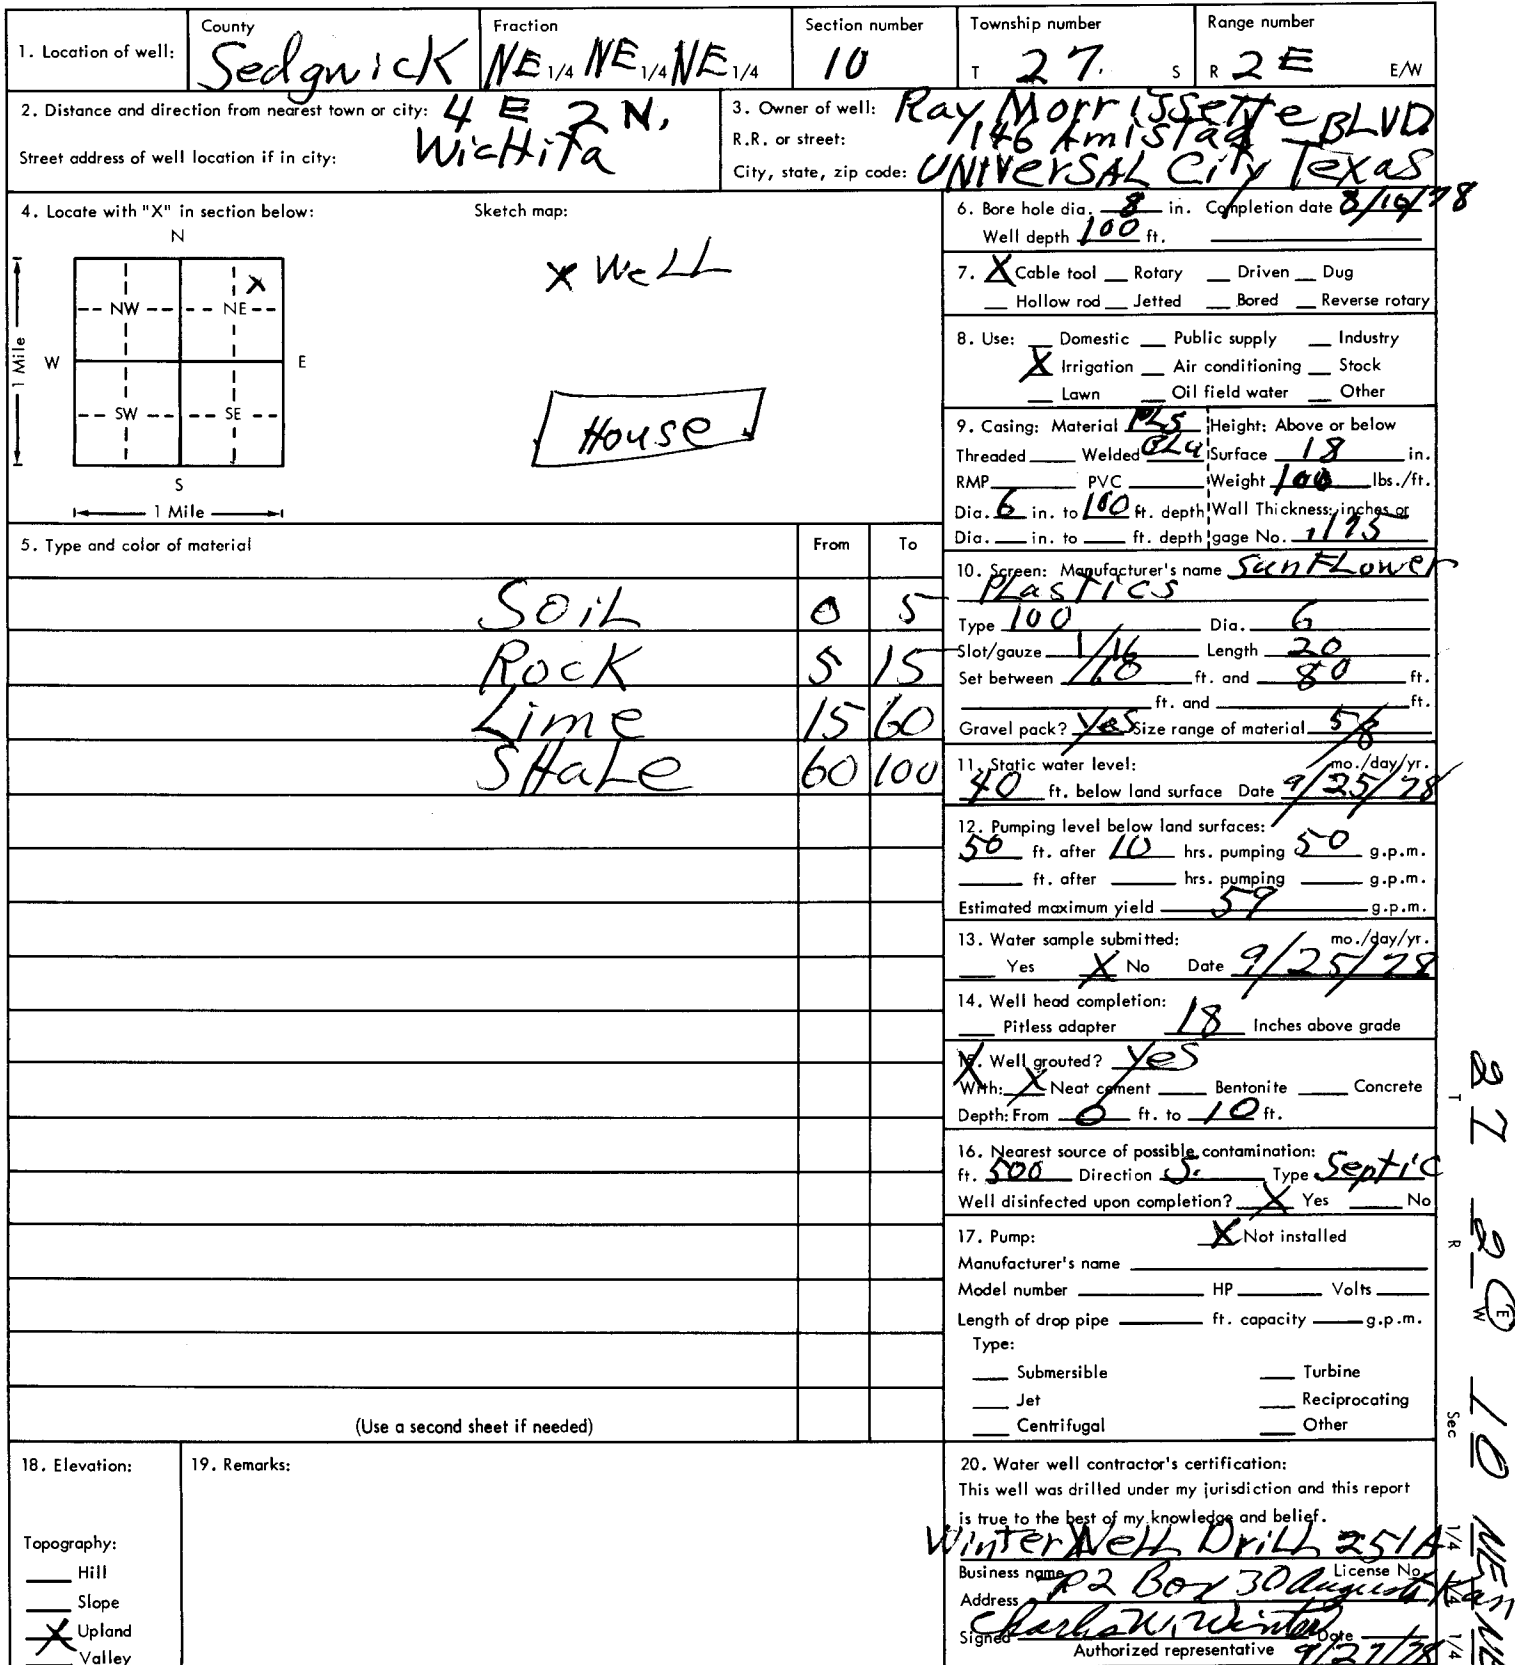 1. Location of well: County Sedgwick Fraction NE 1/4 NE 1/4 NE 1/4 Section number 10 Township number T 27. S Range number R 2 E E/W
2. Distance and direction from nearest town or city: 4 E 2 N, Wichita
Street address of well location if in city:
3. Owner of well: Ray Morrissette
R.R. or street: 7146 Amistad BLVD.
City, state, zip code: UNIVERSAL City Texas
4. Locate with "X" in section below:
N
X
NW NE
W E
SW SE
S
1 Mile
1 Mile
Sketch map:
X Well
House
5. Type and color of material From To
Soil 0 5
Rock 5 15
Lime 15 60
SHaLe 60 100
(Use a second sheet if needed)
6. Bore hole dia. 8 in. Completion date 8/10/78
Well depth 100 ft.
7. X Cable tool Rotary Driven Dug
Hollow rod Jetted Bored Reverse rotary
8. Use: Domestic Public supply Industry
X Irrigation Air conditioning Stock
Lawn Oil field water Other
9. Casing: Material PLS Height: Above or below
Threaded Welded GLu Surface 18 in.
RMP PVC Weight 100 lbs./ft.
Dia. 6 in. to 100 ft. depth Wall Thickness: inches or
Dia. in. to ft. depth gage No.
10. Screen: Manufacturer's name SunFLower
PLasTics
Type 100 Dia. 6
Slot/gauze 1/16 Length 20
Set between ft. and 80 ft.
ft. and ft.
Gravel pack? Yes Size range of material 5/8
11. Static water level: mo./day/yr.
40 ft. below land surface Date 9/25/78
12. Pumping level below land surfaces:
50 ft. after 10 hrs. pumping 50 g.p.m.
ft. after hrs. pumping g.p.m.
Estimated maximum yield 59 g.p.m.
13. Water sample submitted: mo./day/yr.
Yes X No Date 9/25/78
14. Well head completion:
Pitless adapter 18 Inches above grade
15. Well grouted? Yes
With: X Neat cement Bentonite Concrete
Depth: From 0 ft. to 10 ft.
16. Nearest source of possible contamination:
ft. 500 Direction S. Type Septic
Well disinfected upon completion? X Yes No
17. Pump: X Not installed
Manufacturer's name
Model number HP Volts
Length of drop pipe ft. capacity g.p.m.
Type:
Submersible Turbine
Jet Reciprocating
Centrifugal Other
18. Elevation:
Topography:
Hill
Slope
X Upland
Valley
19. Remarks:
20. Water well contractor's certification:
This well was drilled under my jurisdiction and this report
is true to the best of my knowledge and belief.
Winter Well Drill 251A
Business name License No.
Address R2 Box 30 Augusta Kan
Signed Charles W. Winter Date 9/27/78
Authorized representative
T 27 R 2 E W Sec 10 1/4 NE 1/4 1/4 NE